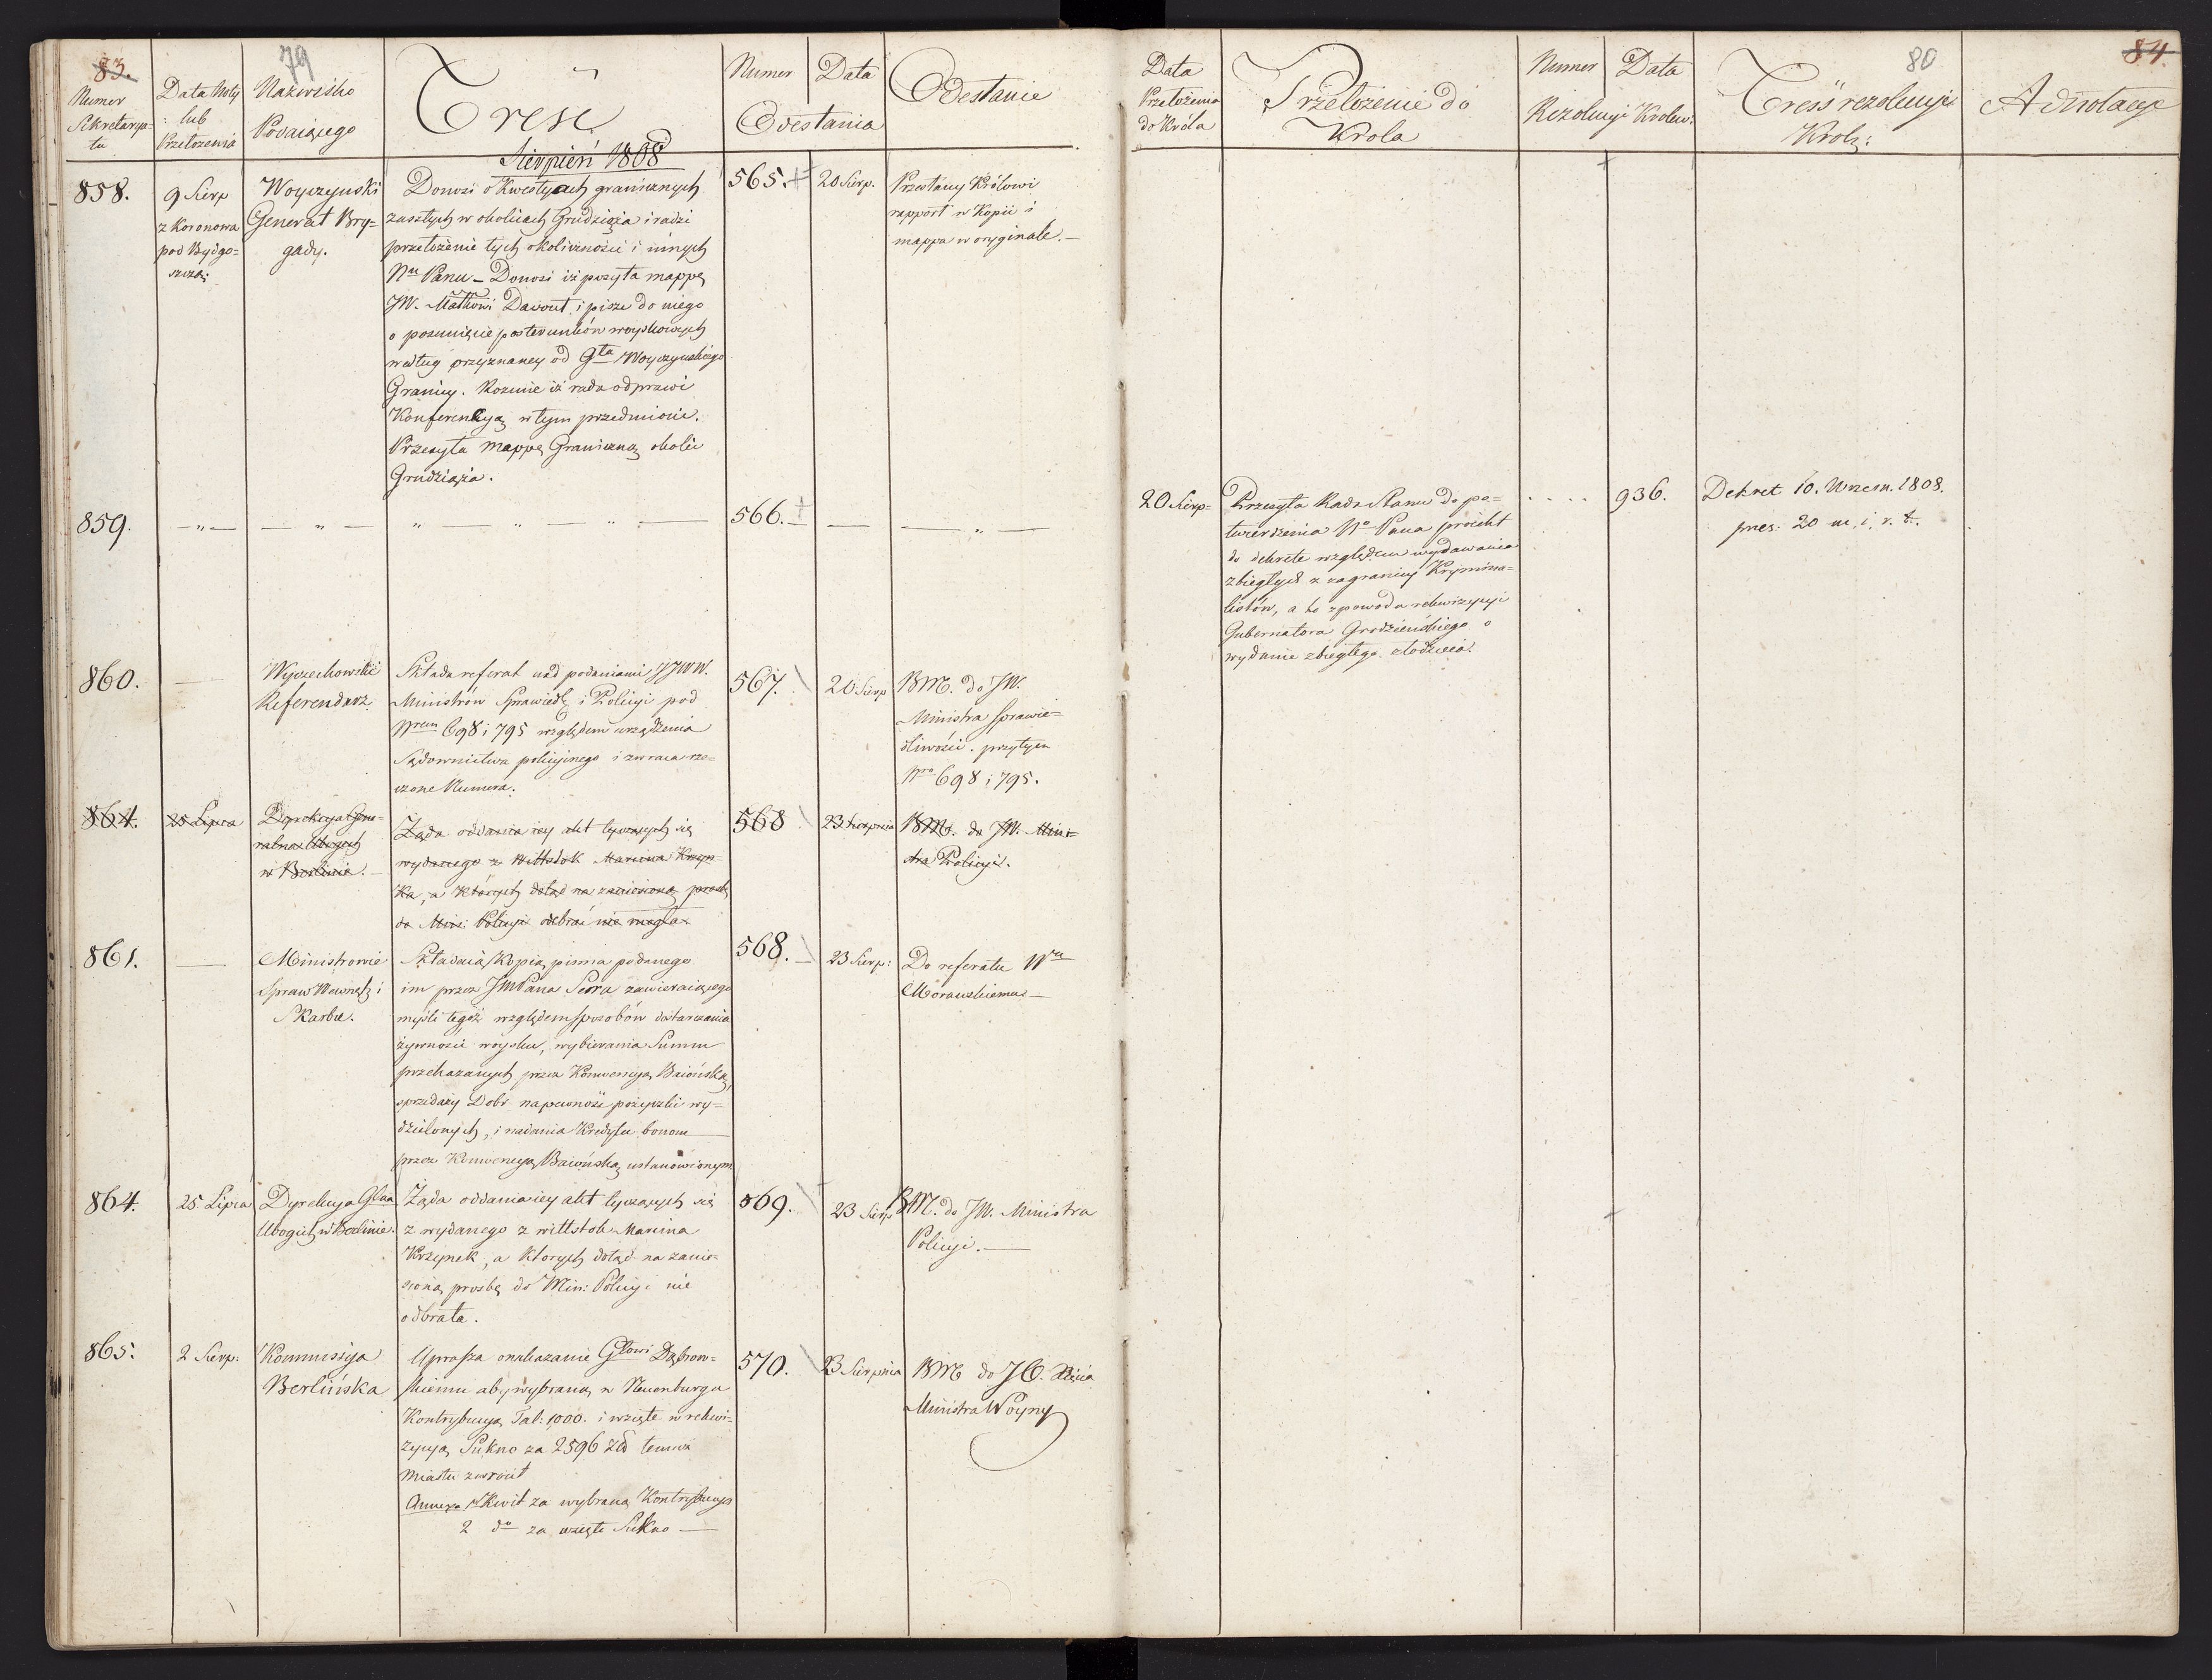 83.
79
Numer
Sekretarya=
tu
Data Noty
lub
Przełożenia
Nazwisko
Podaiącego
Treść
Numer
Data
Odesłania
Odesłanie
Sierpień 1808
858.
9 Sierp
z Koronowa
pod Bydgo=
szczą
Woyczyński
Generał Bry=
gady.
Donosi o Kwestyach granicznych
zaszłych w okolicach Grudziąża i radzi
przełożenie tych okoliczności i innych
Nu Panu — Donosi iż posyła mappę
JW. Małkowi Davout i pisze do niego
o posunięcie posterunków woyskowych
według przyznaney od Gła Woyczyńskiego
Granicy. Rozumie iż rada odprawi
Konferencyą w tym przedmiocie.
Przesyła mappę Graniczną okolic
Grudziąża.
565.
20 Sierp.
Przesłany Królowi
rapport w Kopii i
mappa w oryginale. —
859.
— „ —
— „ —
„ — „ — „ —
566.
—
— „ —
860.
—
Wyczechowski
Referendarz
Składa referat nad podaniami JJWW.
Ministrów Sprawiedl: i Policyi pod
Nrem 698 i 795 względem urządzenia
Sądownictwa policyjnego i zwraca rze=
czone Numera.
567.
20 Sierp
BM. do JW.
Ministra Sprawie=
dliwości. przytym
Nro 698 i 795.
864.
25 Lipca
Dyrekcya Gene=
ralna Ubogich
w Berlinie. —
Żąda oddania iey akt tyczących się
wydanego z Wittstok Marcina Krzyn=
ka, a których dotąd na zaniesioną prośbę
do Min: Policyi odebrać nie mogła.
568
23 Sierpnia
BM. do JW. Mini=
stra Policyi.
861.
—
Ministrowie
Spraw Wewnętz i
Skarbu.
Składaią Kopią pisma podanego
im przez JMPana Serra zawieraiącego
myśli tegoż względem sposobów dostarczania
żywności woysku, wybierania Summ
przekazanych przez Konwencyą Baiońską,
sprzedaży Dobr na pewność pożyczki wy=
dzielonych, i nadania Kredytu bonom
przez Konwencyą Baiońską ustanowionym
568. —
23 Sierp:
Do referatu Wu
Morawskiemu —
864.
25 Lipca
Dyrekcya Glna
Ubogich w Berlinie.
Żąda oddania iey akt tyczących się
z wydanego z wittstok Marcina
Krzynek, a ktorych dotąd na zanie=
sioną prosbę do Min: Policyi nie
odbrała.
569.
23 Sierp
BM. do JW. Ministra
Policyi. —
865.
2 Sierp:
Kommissya
Berlińska
Uprasza o nakazanie Głowi Dąbrow=
skiemu aby wybraną w Neuenburgu
Kontrybucyą Tal: 1000. i wzięte w rekwi=
zycyą Sukno za 2596 Zł temuż
Miastu zwrócił
Annexa 1 Kwit za wybraną Kontrybucyą
2 do za wzięte Sukno —
570.
23 Sierpnia
BM do JO. Xięcia
Ministra Woyny
80
84.
Data
Przełożenia
do Króla
Przełożenie do
Krola
Numer
Data
Rezolucyi Krolew:
Treść rezolucyi
Krolę:
Adnotacye
20 Sierp=
Przesyła Rada Stanu do po=
twierdzenia No Pana proiekt
do dekretu względem wydawania
zbiegłych z zagranicy Krymina=
listów, a to z powodu rekwizycyi
Gubernatora Grodzieńskiego o
wydanie zbiegłego złodzieia.
. . . .
936.
Dekret 10. Wrzesn. 1808.
pres: 20 m. i. r. t.